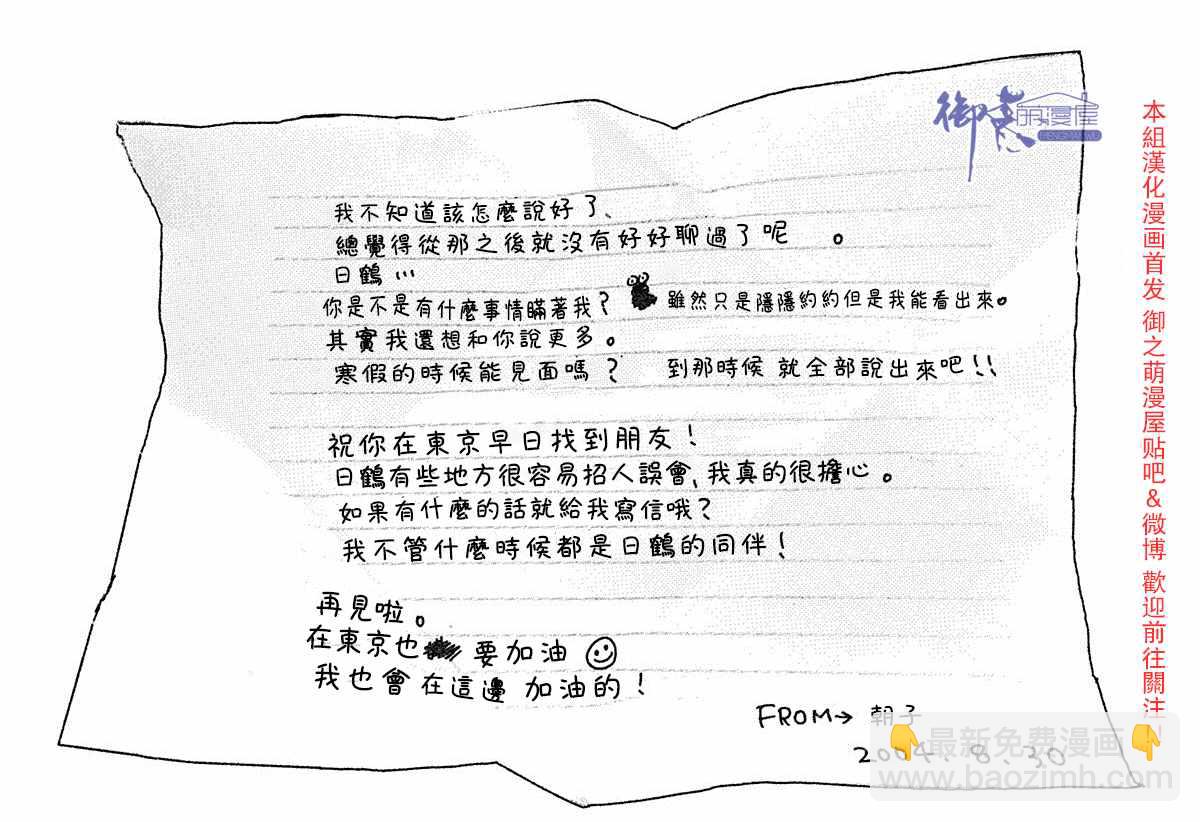 我不知道該怎麼說好了、
總覺得從那之後就沒有好好聊過了呢 。
日鶴…
你是不是有什麼事情瞞著我? 雖然只是隱隱約約但是我能看出來。
其實我還想和你說更多。
寒假的時候能見面嗎? 到那時候 就全部說出來吧!!
祝你在東京早日找到朋友!
日鶴有些地方很容易招人誤會,我真的很擔心。
如果有什麼的話就給我寫信哦?
我不管什麼時候都是日鶴的同伴!
再見啦。
在東京也 要加油
我也會在這邊 加油的!
FROM→ 朝子
2004.8.30
本組漢化漫画首发 御之萌漫屋贴吧&微博 歡迎前往關注!
御
萌漫屋
最新免费漫画
www.baozimh.com